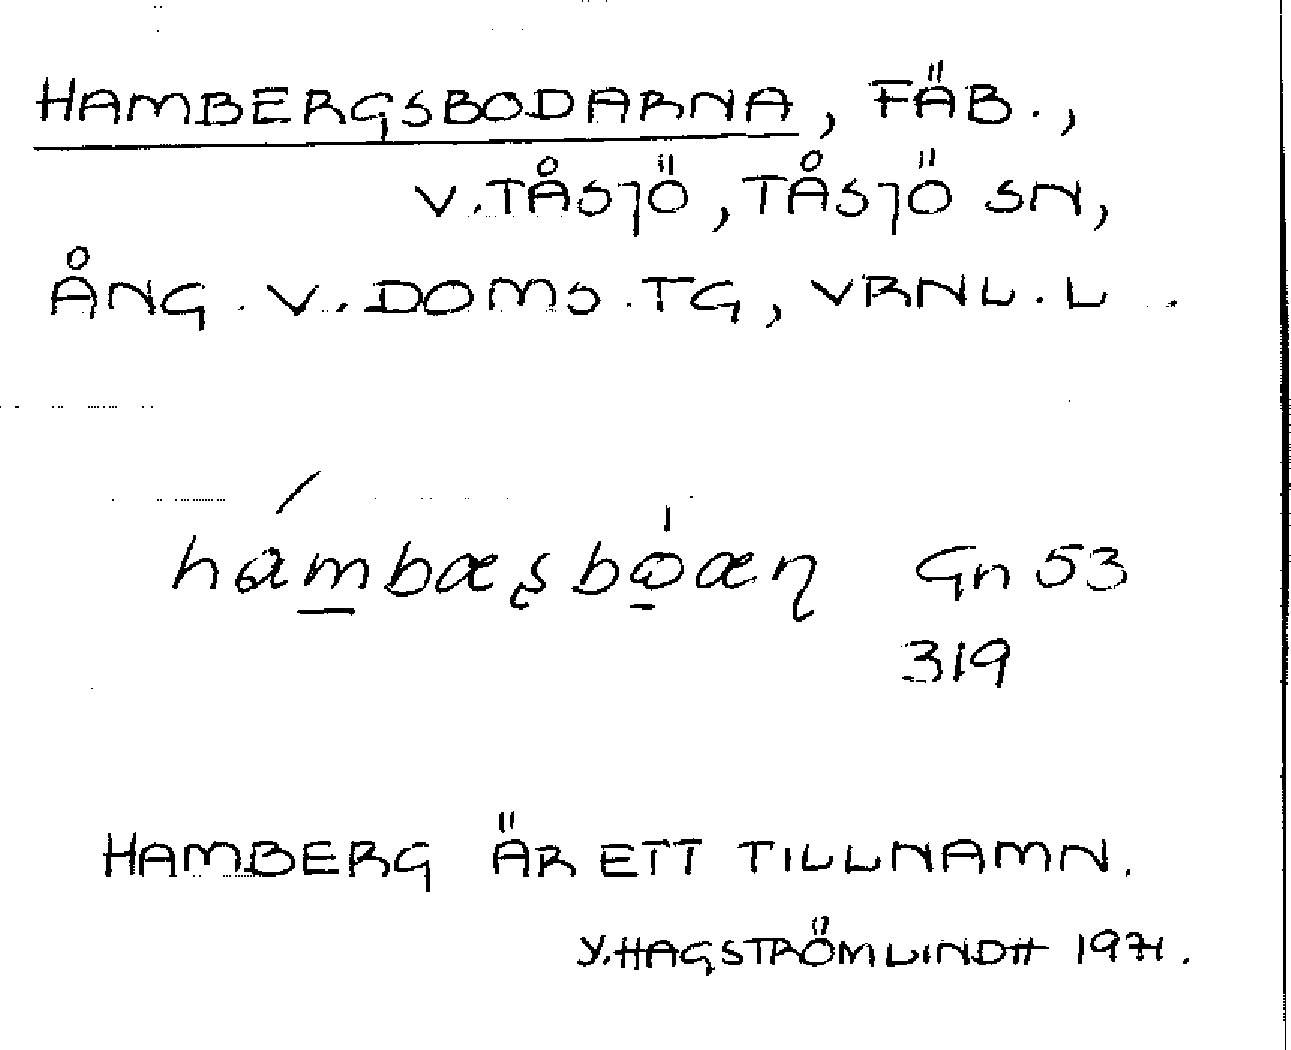 HAMBERGSBODARNA, FÄB.,
V. TÅSJÖ, TÅSJÖ SN,
ÅNG. V. DOMS. TG, VRNL. L.
hámbæʂbo̠̍æɳ Gn 53
319
HAMBERG ÄR ETT TILLNAMN.
Y. HAGSTRÖM LINDH 1971.